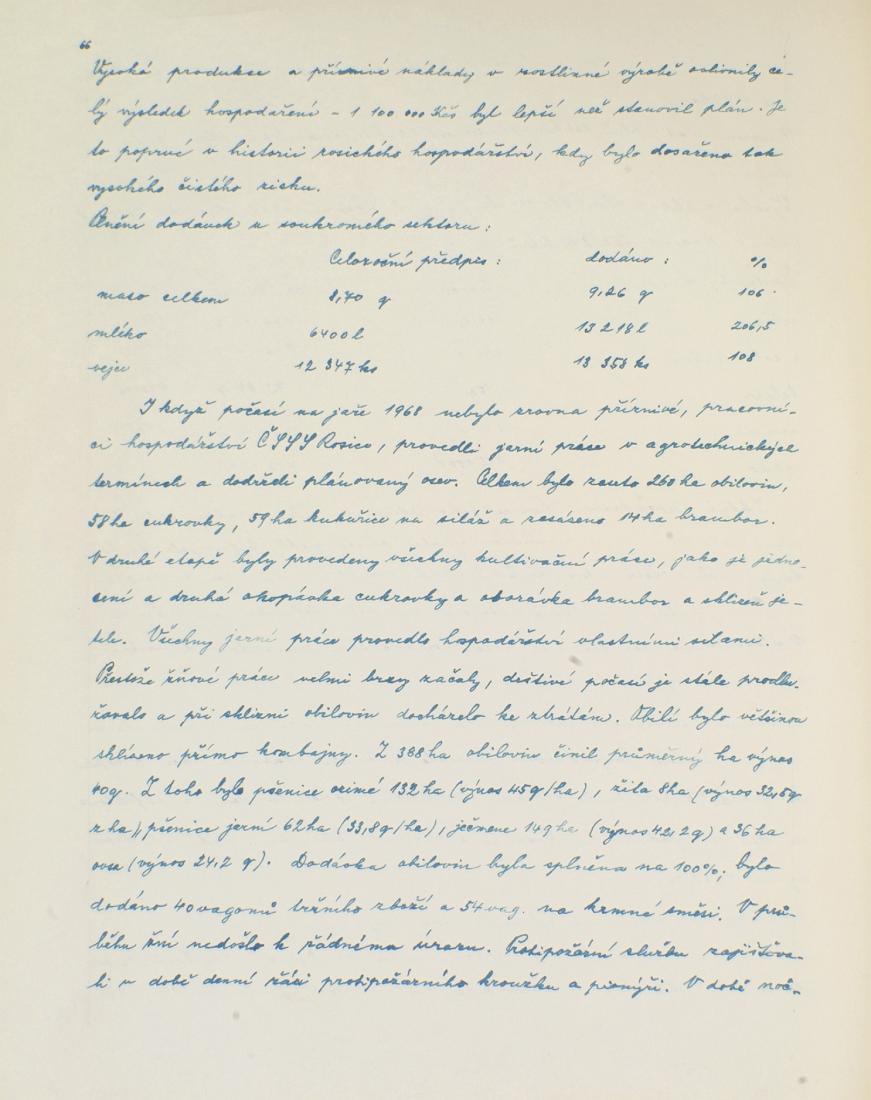 66
Vysoká produkce a příznivé náklady v rostlinné výrobě ovlivnily ce-
lý výsledek hospodaření - 1 100 000 Kčs byl lepší než stanovil plán. Je
to poprvé v historii rosického hospodářství, kdy bylo dosaženo tak
vysokého čistého zisku.
Plnění dodávek u soukromého sektoru :
Celoroční předpis : dodáno : %
maso celkem 8,70 q 9,26 q 106
mléko 6400 l 13 218 l 206,5
vejce 12 347 ks 13 358 ks 108
I když počasí na jaře 1968 nebylo zrovna příznivé, pracovní-
ci hospodářství ČSSS Rosice, provedli jarní práce v agrotechnických
termínech a dodrželi plánovaný osev. Celkem bylo zaseto 260 ha obilovin,
58 ha cukrovky, 59 ha kukuřice na siláž a zasázeno 14 ha brambor.
V druhé etapě byly provedeny všechny kultivační práce, jako je jedno-
cení a druhá okopávka cukrovky a oborávka brambor a sklizeň je-
tele. Všechny jarní práce provedlo hospodářství vlastními silami.
Přestože žňové práce velmi brzy začaly, deštivé počasí je stále prodlu-
žovalo a při sklizni obilovin docházelo ke ztrátám. Obilí bylo většinou
sklízeno přímo kombajny. Z 388 ha obilovin činil průměrný ha výnos
40q. Z toho bylo pšenice ozimé 132 ha (výnos 45q/ha), žita 8ha (výnos 32,8q
z ha), pšenice jarní 62 ha (33,8q/ha), ječmene 149 ha (výnos 42,2q) a 36 ha
ovsa (výnos 24,2 q). Dodávka obilovin byla splněna na 100%, bylo
dodáno 40 vagonů tržního zboží a 54 vag. na krmné směsi. V prů-
běhu žní nedošlo k žádnému úrazu. Protipožární službu zajišťova-
li v době denní žáci protipožárního kroužku a pionýři. V době noč-